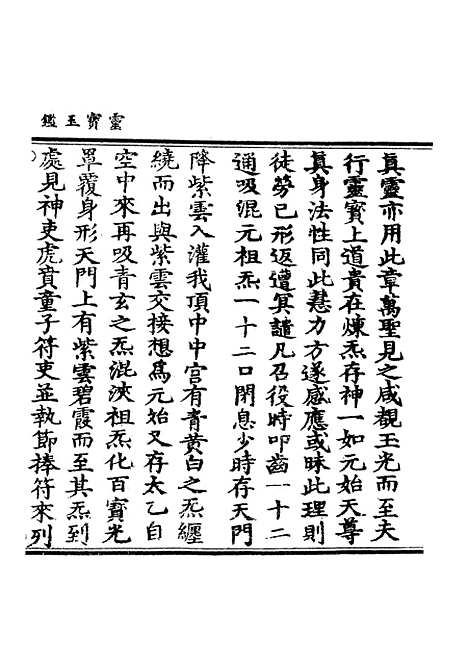 靈寳玉鑑
真靈亦用此章萬聖見之咸覩玉光而至夫
行靈寳上道貴在煉炁存神一如元始天尊
真身法性同此慧力方遂感應或昧此理則
徒勞已形返遭冥譴凡召役時叩齒一十二
通吸混元祖炁一十二口閉息少時存天門
降紫雲入灌我頂中中宫有青黃白之炁纏
繞而出與紫雲交接想爲元始又存太乙自
空中來再吸青玄之炁混浹祖炁化百寳光
罩覆身形天門上有紫雲碧霞而至其炁到
處見神吏虎賁童子符吏並執節捧符來列